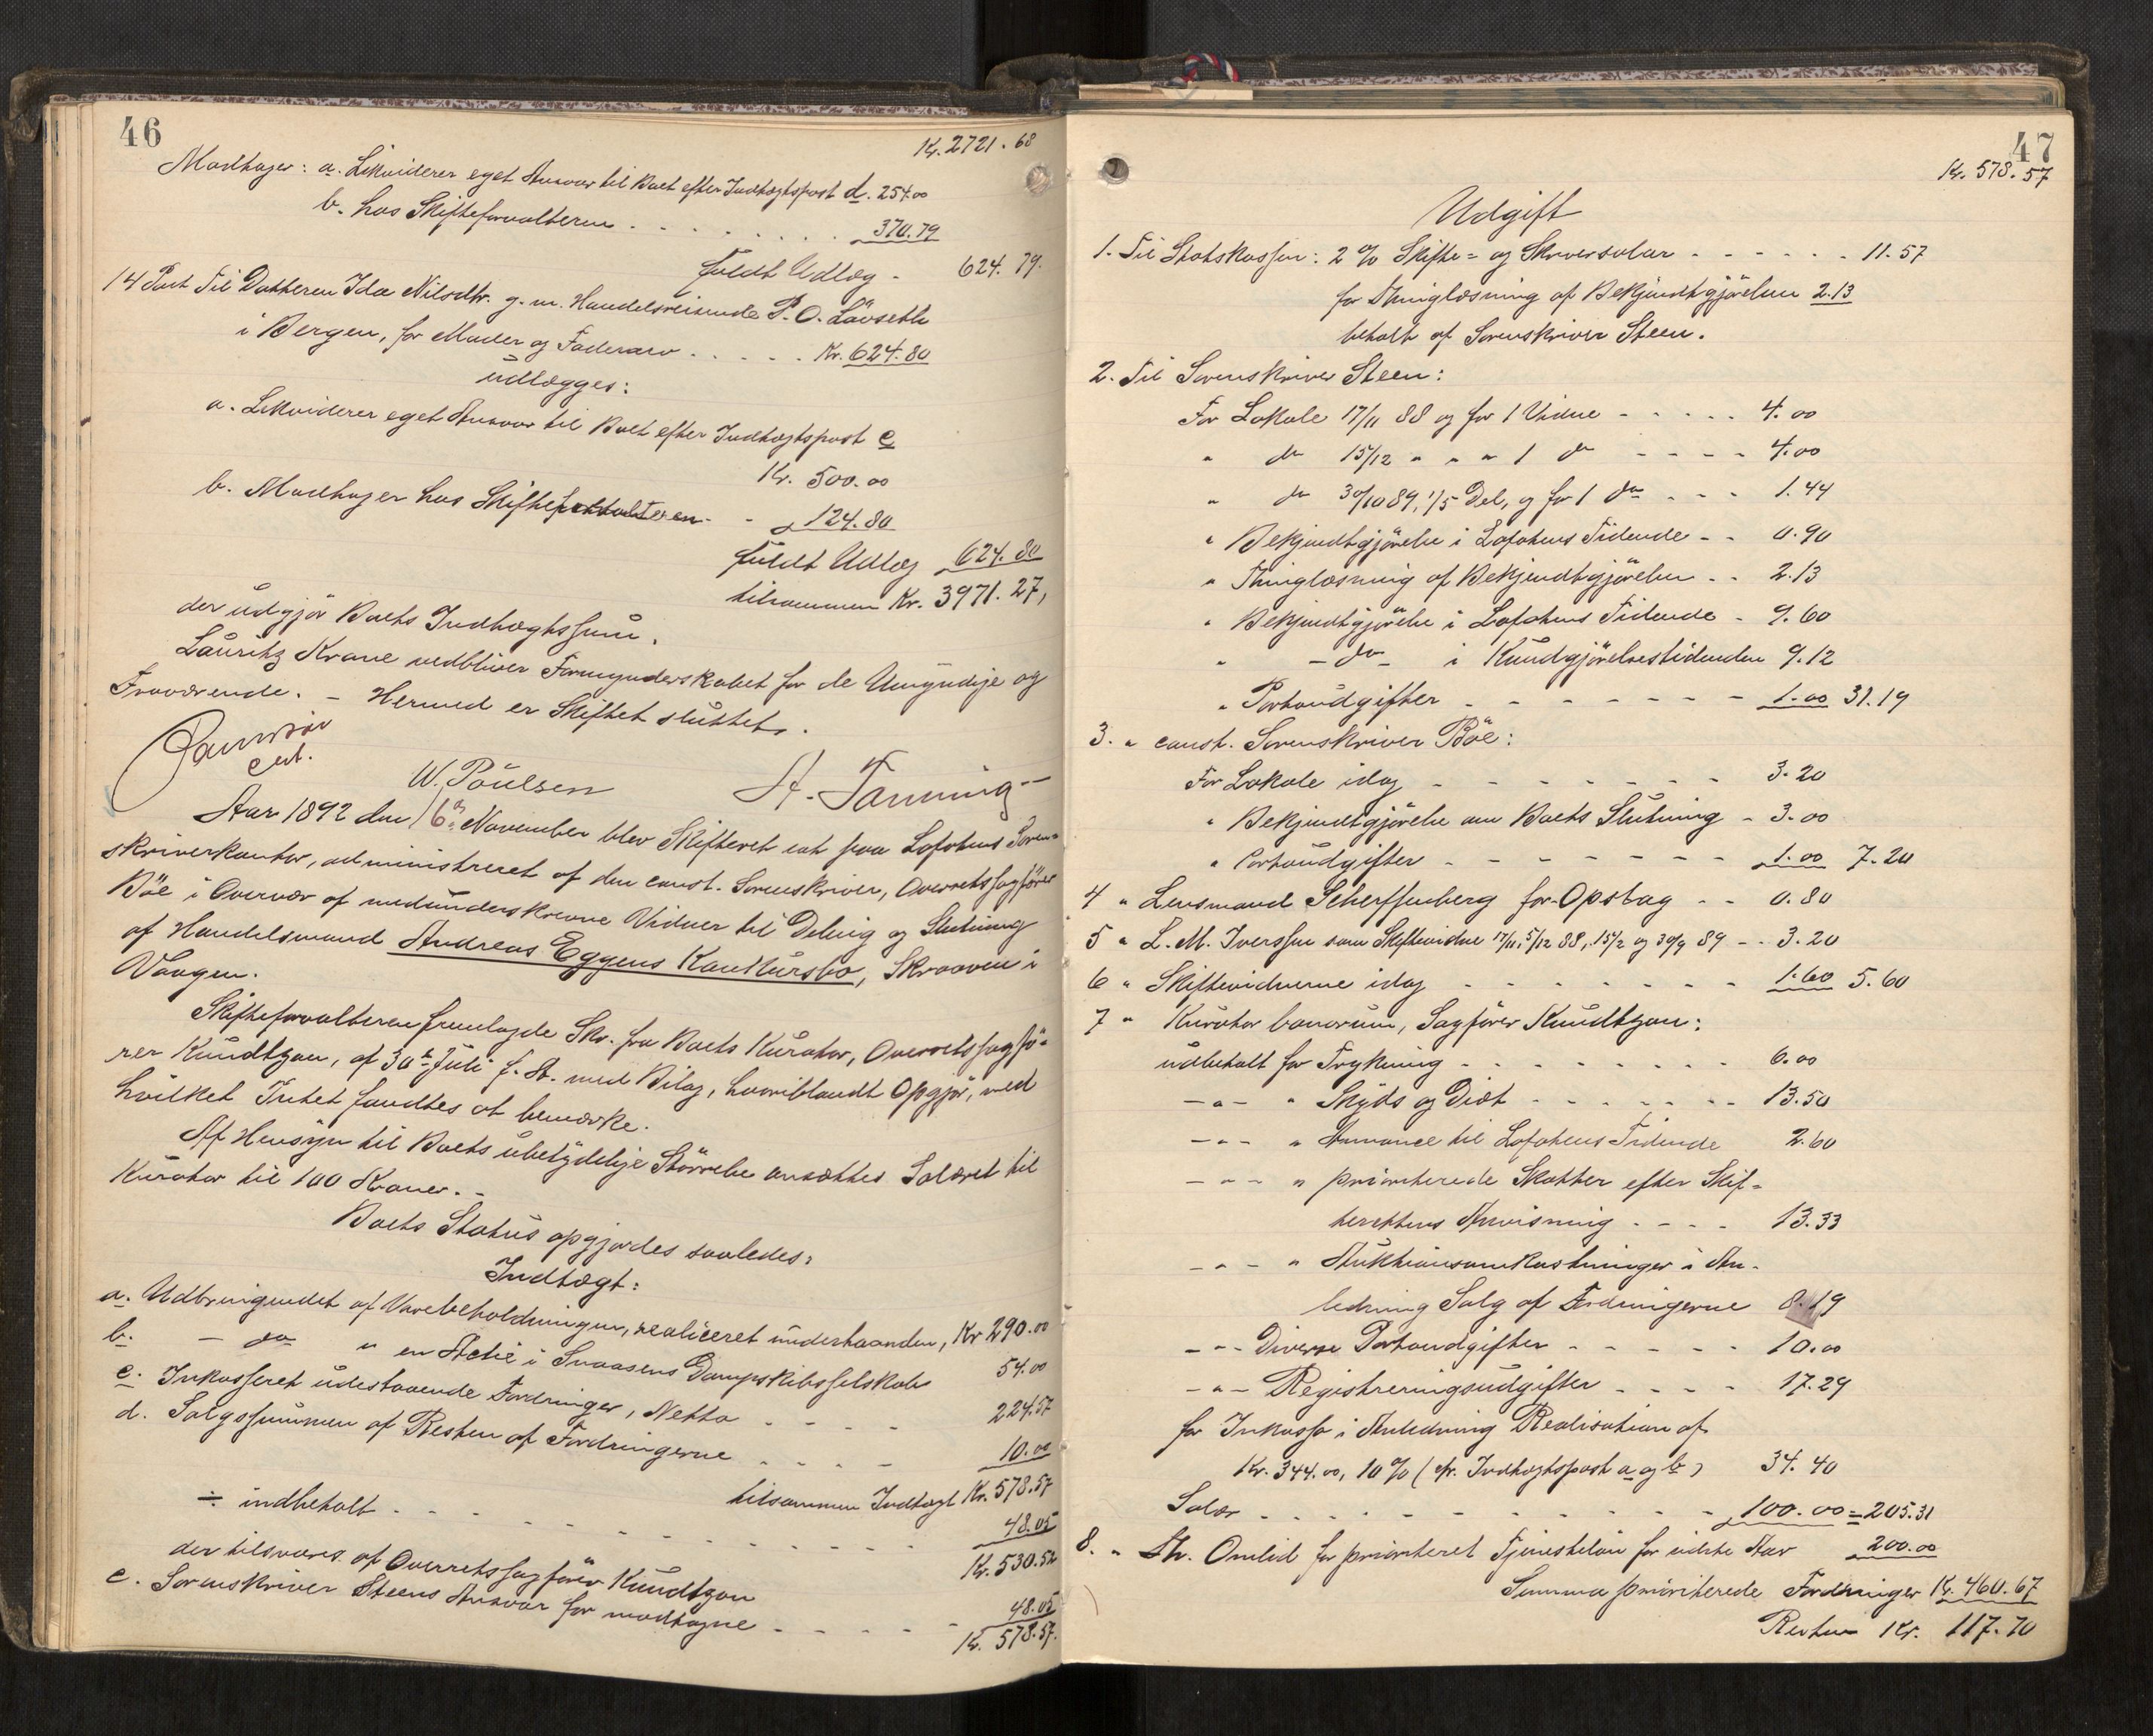 46
Kr. 2721.68
Modtager: a. Likviderer eget Ansvar til Boet efter Indtægtspost d. 254.00
b. hos Skifteforvalteren . . . . . . . 370.79
fuldt Udlæg - 624.79.
14 Post Til Datteren Ida Nilsdtr. g. m. Handelsreisende P. O. Lövseth
i Bergen, for Moder og Faderarv . . . . . Kr. 624.80
udlægges:
a. Likviderer eget Ansvar til Boet efter Indtægtspost e
Kr. 500.00
b. Modtager hos Skifteforvalteren - - " 124.80
fuldt Udlæg 624.80
tilsammen Kr. 3971.27,
der udgjör Boets Indtægtssum.
Lauritz Krane vedbliver Formynderskabet for de Umyndige og
Fraværende. - Hermed er Skiftet sluttet.
cst.
W. Poulsen
A. Tanning
Aar 1892 den 16de November blev Skifteret sat paa Lofotens Soren-
skriverkontor, administreret af den const. Sorenskriver, Overretssagförer
Böe i Overvær af medunderskrevne Vidner til Deling og Slutning
af Handelsmand Andreas Eggens Konkursbo, Skraaven i
Vaagen.
Skifteforvalteren fremlagde Skr. fra Boets Kurator, Overretssagfö-
rer Knudtzon, af 30te Juli f. A. med Bilag, hvoriblandt Opgjör, ved
hvilket Intet fandtes at bemærke.
Af Hensyn til Boets ubetydelige Störrelse ansættes Salæret til
Kurator til 100 Kroner. -
Boets Status opgjordes saaledes:
Indtægt:
a. Udbringendet af Varebeholdningen, realiceret underhaanden, Kr 290.00
b. - do " en Actie i Snaasens Dampskibsselskab 54.00
c. Inkasseret udestaaende Fordringer, Netto - - - 224.57
d. Salgssummen af Resten af Fordringerne - - - - 10.00
tilsammen Indtægt Kr. 578.57
÷ indbetalt - - - - - - - - - - - 48.05
Kr. 530.52
der tilsvares af Overretssagförer Knudtzon
e. Sorenskriver Steens Ansvar for modtagne - - - - - 48.05
Kr. 578.57.
47
Kr. 578.57
Udgift
1. Til Statskassen: 2 % Skifte- og Skriversalær - - - - - - 11.57
for Thinglæsning af Bekjendtgjörelsen 2.13
betalt af Sorenskriver Steen.
2. Til Sorenskriver Steen:
For Lokale 17/11 88 og for 1 Vidne - - - - - 4.00
" do 15/12 " " " 1 do - - - - 4.00
" do 30/10 89, 1/5 Del, og for 1 do - - - 1.44
" Bekjendtgjörelse i Lofotens Tidende - - 0.90
" Thinglæsning af Bekjendtgjörelsen - - 2.13
" Bekjendtgjörelse i Lofotens Tidende - 9.60
" - do - i Kundgjörelsestidenden 9.12
" Portoudgifter - - - - - - - 1.00 31.19
3. " const. Sorenskriver Böe:
For Lokale idag - - - - - - - 3.20
" Bekjendtgjörelse om Boets Slutning - 3.00
" Portoudgifter - - - - - - - " 1.00 7.20
4 " Lensmand Scherffenberg for Opslag - - 0.80
5 " L. M. Iverssen som Skiftevidne 17/11, 5/12 88, 15/2 og 30/9 89 - - 3.20
6 " Skiftevidnerne idag - - - - - - - - 1.60 5.60
7 " Kurator bonorum, Sagförer Knudtzon:
udbetalt for Trykning - - - - - - - - 6.00
- " - " Skyds og Diæt - - - - - - - 13.50
- " - " Annonce til Lofotens Tidende 2.60
- " - " prioriterede Skatter efter Skif-
terettens Anvisning - - - - 13.33
- " - " Auktionsomkostninger i An-
ledning Salg af Fordringerne 8.19
- " - Diverse Portoudgifter - - - - - 10.00
- " - Registreringsudgifter - - - - 17.29
for Inkasso i Anledning Realisation af
Kr. 344.00, 10 % (cfr. Indtægtspost a og b) 34.40
Salær - - - - - - - - - - " 100.00 = 205.31
8. " Omlid for prioriteret Tjenestelön for sidste Aar 200.00
Summa prioriterede Fordringer Kr. 460.67
Resten Kr. 117.70